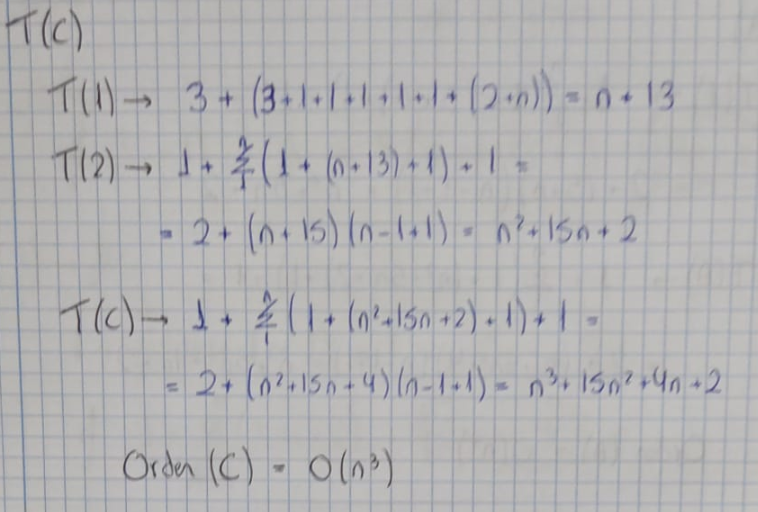 T(C)
T(1) → 3 + (3+1+1+1+1+1+(2+n)) = n+13
T(2) → 1 + Σ₁ⁿ (1 + (n+13) + 1) + 1 =
= 2 + (n+15)(n-1+1) = n²+15n+2
T(C) → 1 + Σ₁ⁿ (1 + (n²+15n+2) + 1) + 1 =
= 2 + (n²+15n+4)(n-1+1) = n³+15n²+4n+2
Orden (C) = O(n³)